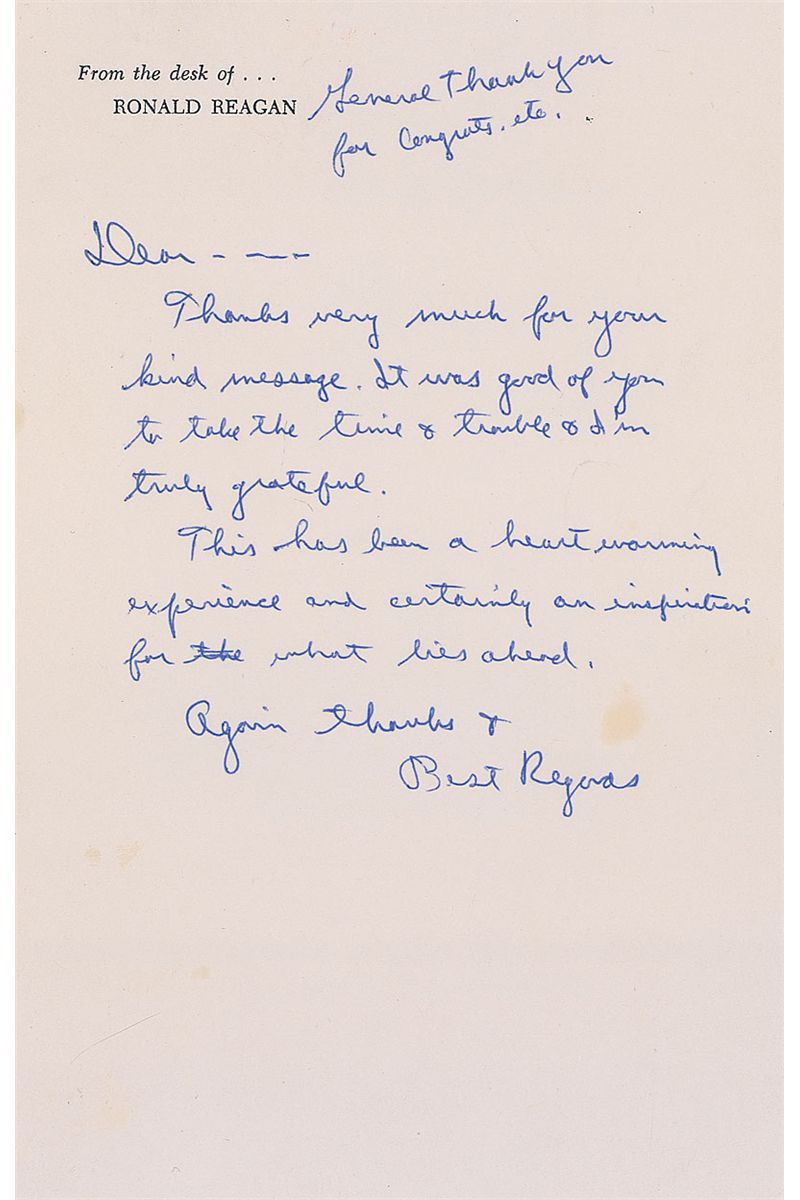 From the desk of . . .
RONALD REAGAN
General Thank you
for Congrats. etc.
Dear - — — -
Thanks very much for your
kind message. It was good of you
to take the time & trouble & I'm
truly grateful.
This has been a heart warming
experience and certainly an inspiration
for the what lies ahead.
Again thanks &
Best Regards